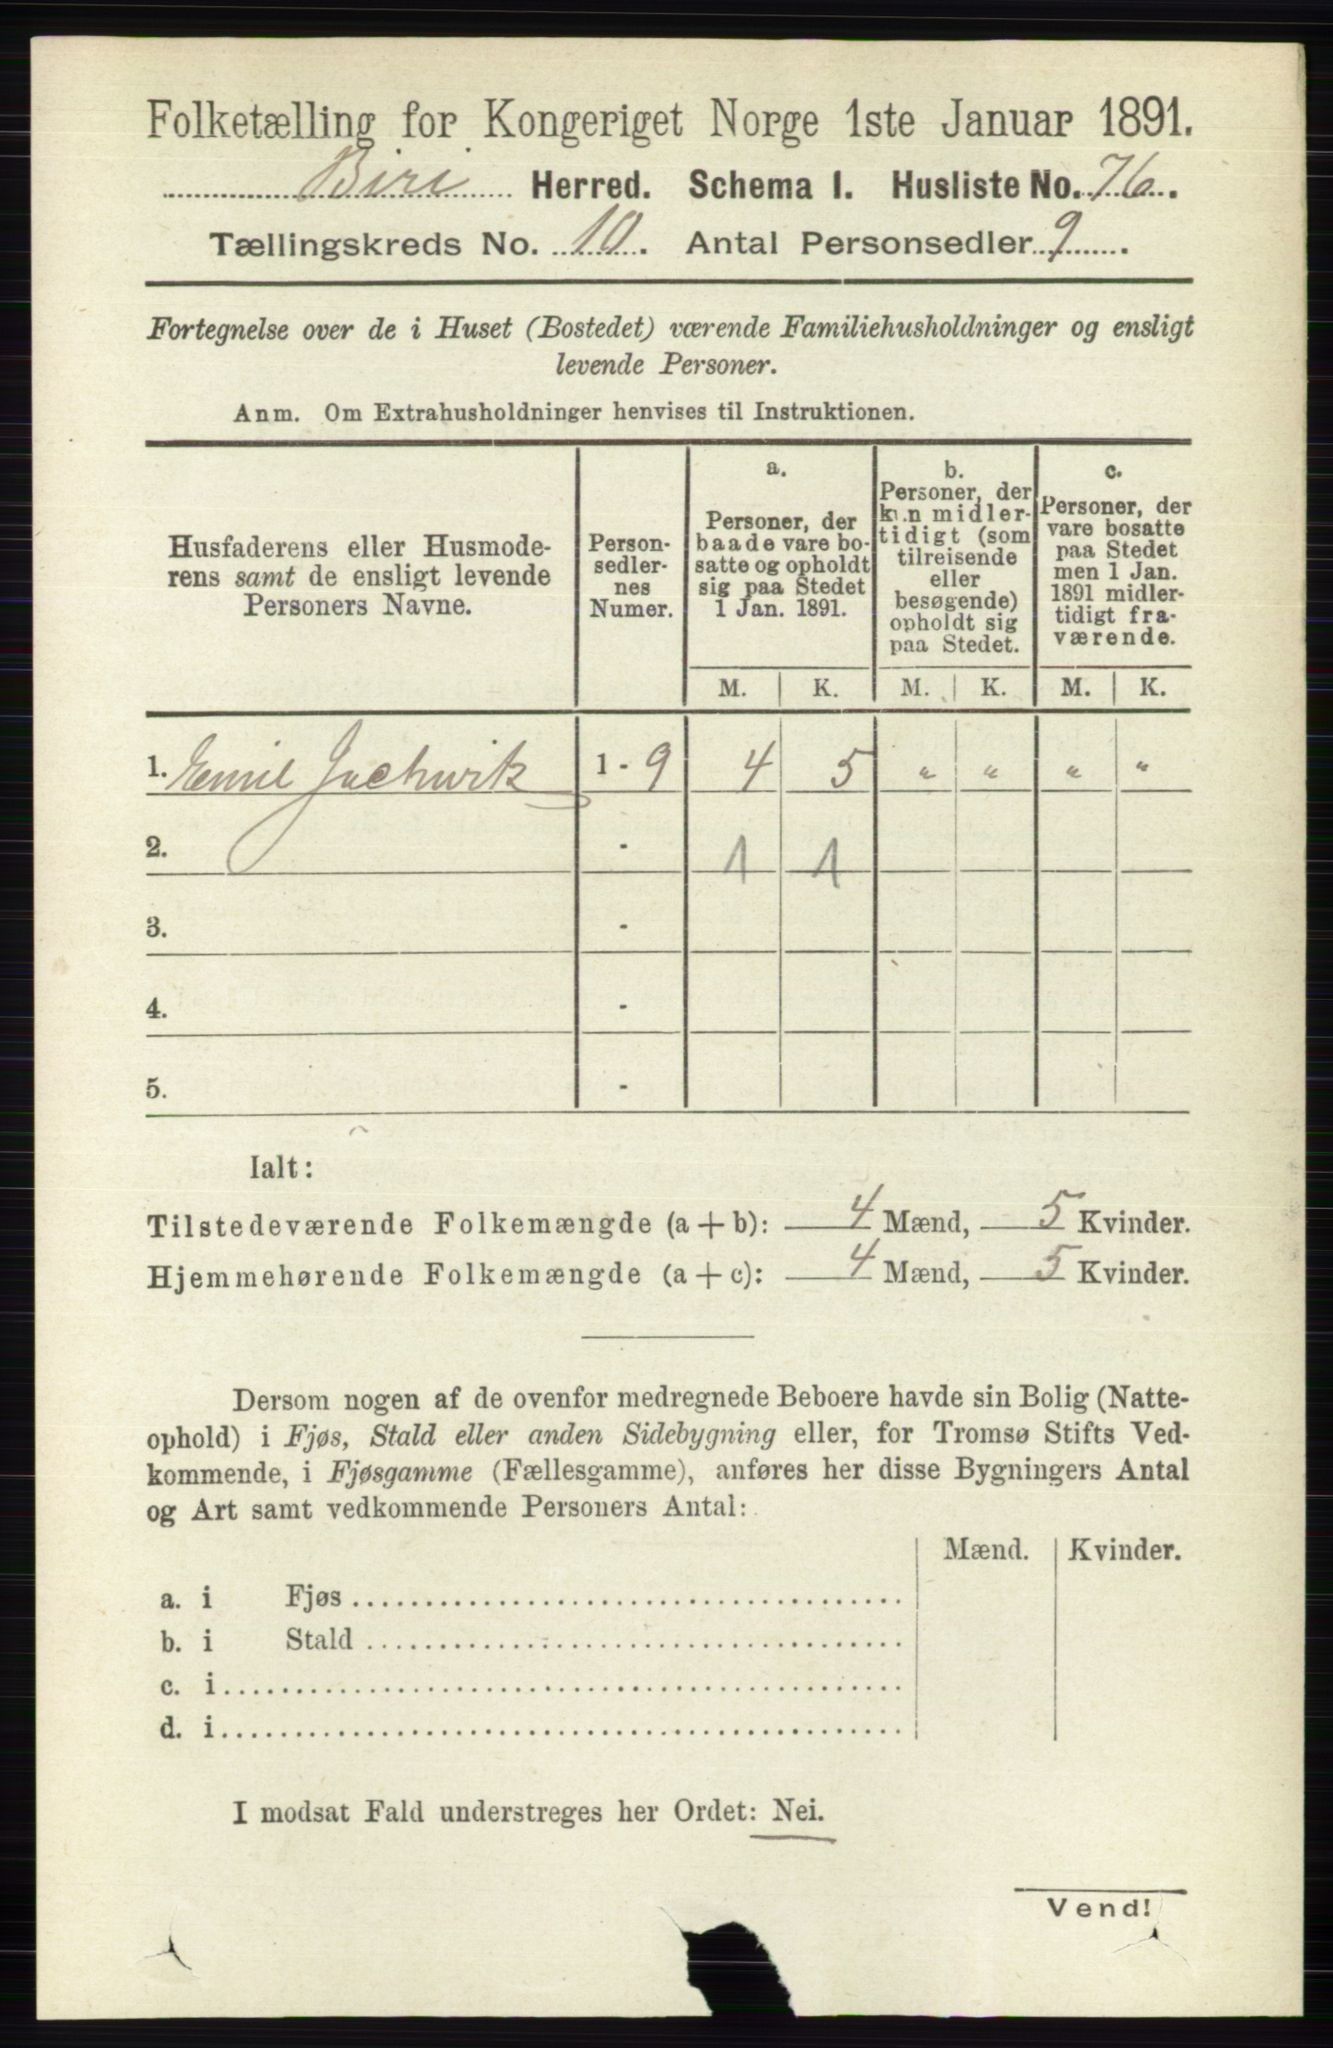 Folketælling for Kongeriget Norge 1ste Januar 1891.
Biri Herred. Schema I. Husliste No. 76.
Tællingskreds No. 10. Antal Personsedler 9.
Fortegnelse over de i Huset (Bostedet) værende Familiehusholdninger og ensligt
levende Personer.
Anm. Om Extrahusholdninger henvises til Instruktionen.
Husfaderens eller Husmode-
rens samt de ensligt levende
Personers Navne.
Person-
sedler-
nes
Numer.
a.
Personer, der
baade vare bo-
satte og opholdt
sig paa Stedet
1 Jan. 1891.
b.
Personer, der
kun midler-
tidigt (som
tilreisende
eller
besøgende)
opholdt sig
paa Stedet.
c.
Personer, der
vare bosatte
paa Stedet
men 1 Jan.
1891 midler-
tidigt fra-
værende.
M. K. M. K. M. K.
1. Emil 1 - 9 4 5 " " " "
2. - 1 1
3. -
4. -
5. -
Ialt:
Tilstedeværende Folkemængde (a + b): 4 Mænd, 5 Kvinder.
Hjemmehørende Folkemængde (a + c): 4 Mænd, 5 Kvinder.
Dersom nogen af de ovenfor medregnede Beboere havde sin Bolig (Natte-
ophold) i Fjøs, Stald eller anden Sidebygning eller, for Tromsø Stifts Ved-
kommende, i Fjøsgamme (Fællesgamme), anføres her disse Bygningers Antal
og Art samt vedkommende Personers Antal:
Mænd. Kvinder.
a. i Fjøs
b. i Stald
c. i
d. i
I modsat Fald understreges her Ordet: Nei.
Vend!